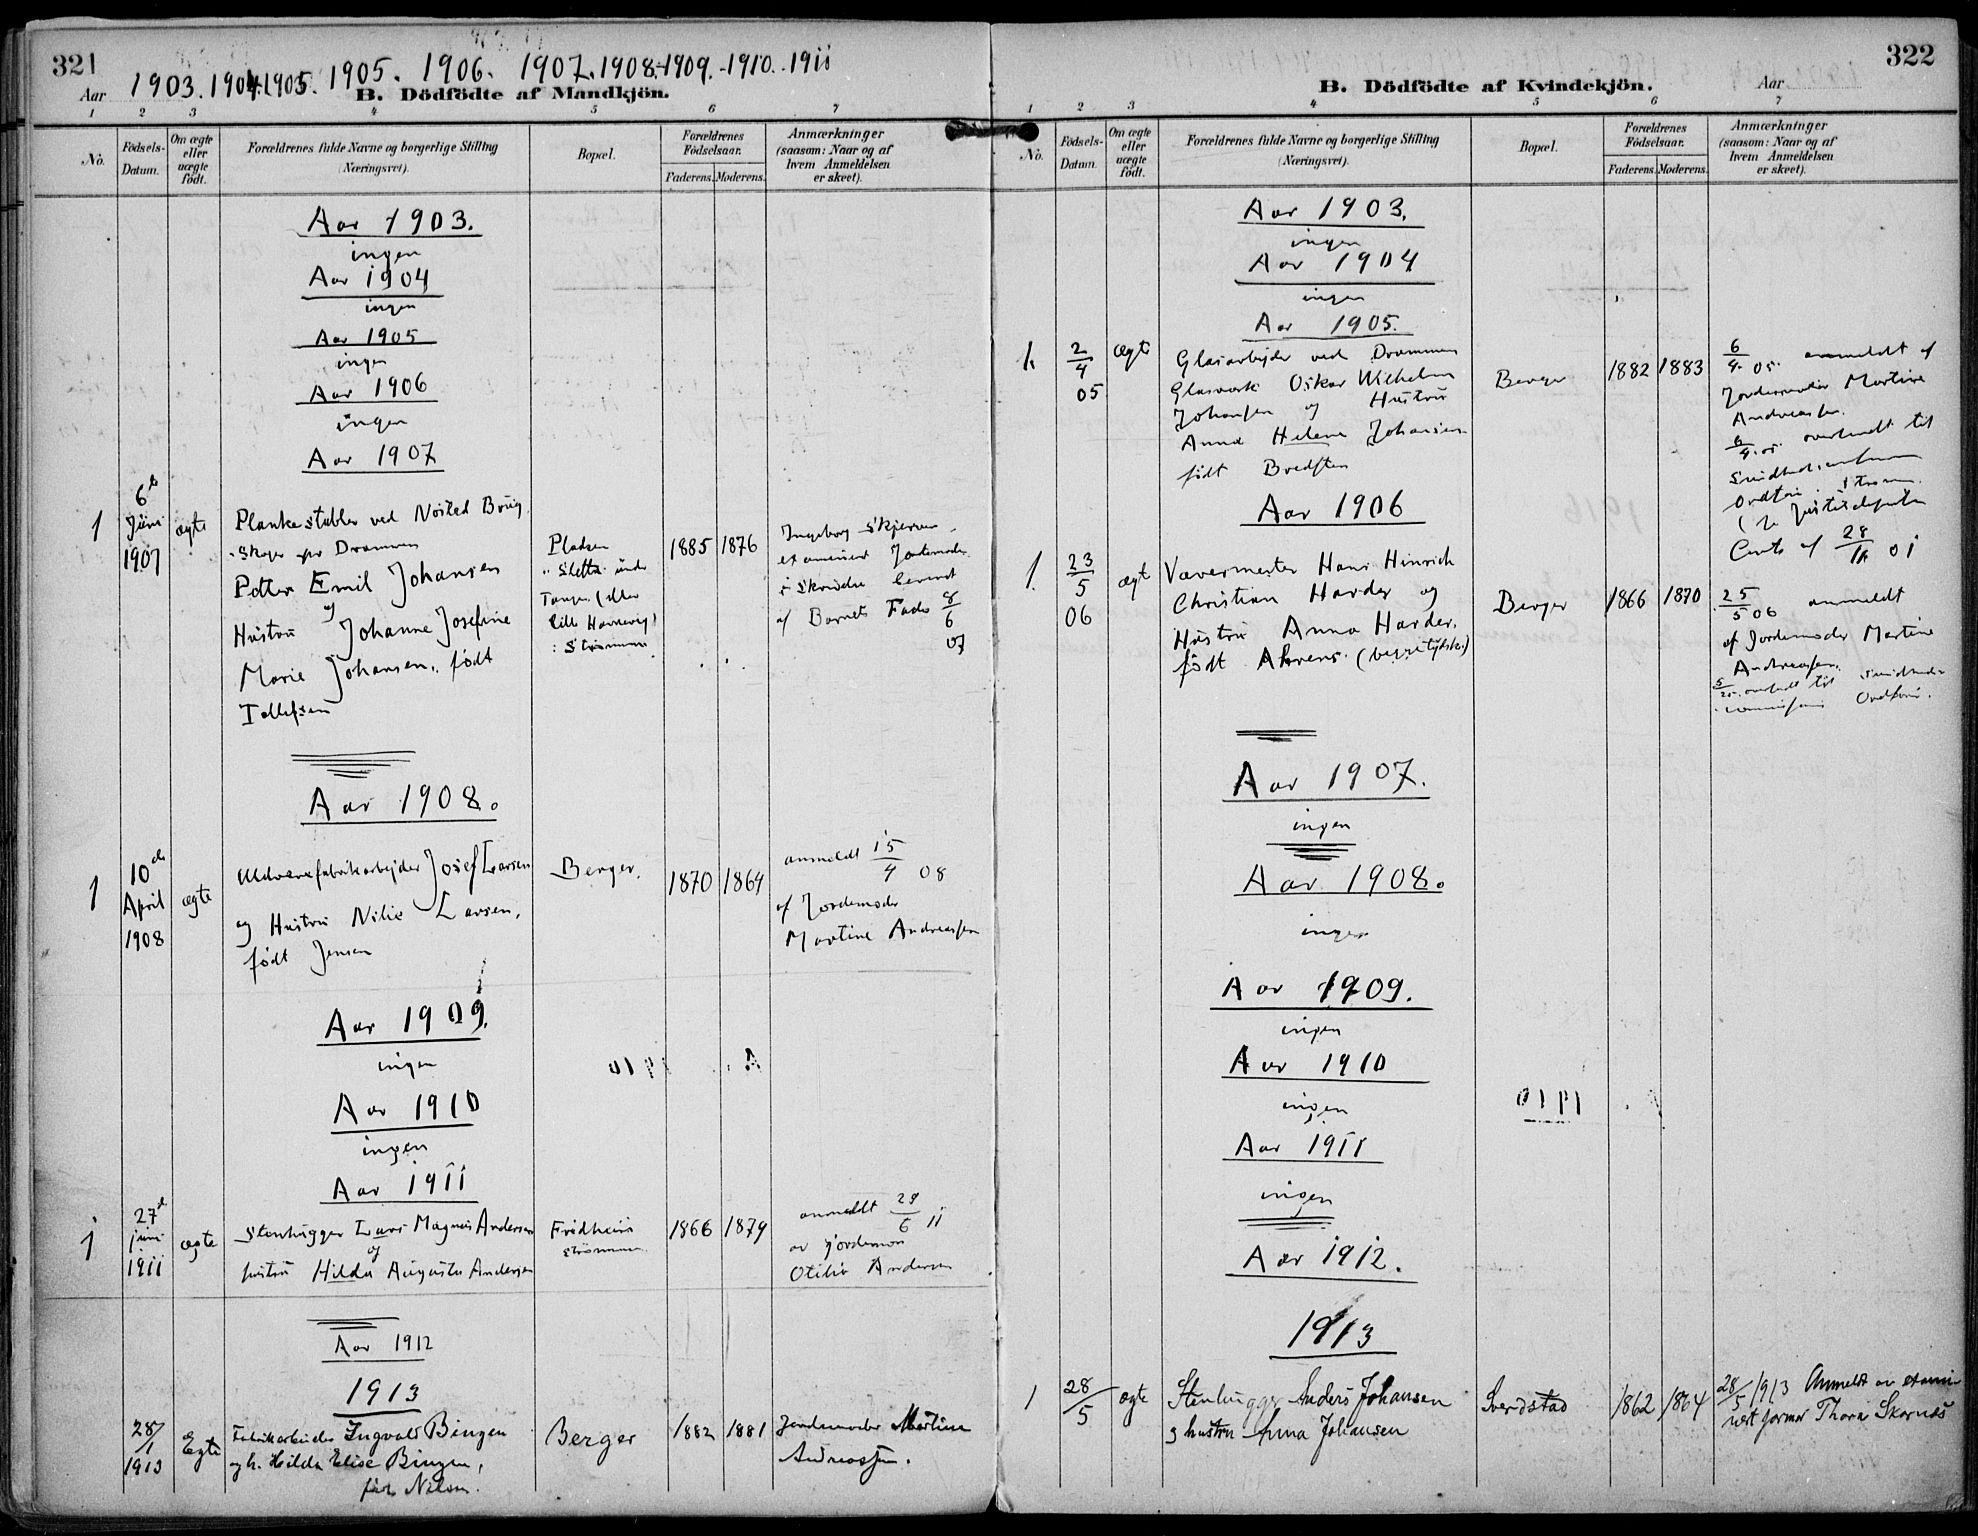 321
Aar 1903. 1904. 1905. 1905. 1906. 1907. 1908. 1909. -1910. 1911
B. Dödfödte af Mandkjön.
1 2 3 4 5 6 7
No.
Födsels-Datum.
Om ægte eller uægte födt.
Forældrenes fulde Navne og borgerlige Stilling (Næringsvei).
Bopæl.
Forældrenes Födselsaar.
Faderens. Moderens.
Anmærkninger (saasom: Naar og af hvem Anmeldelsen er skeet).
Aar 1903.
ingen
Aar 1904
ingen
Aar 1905
ingen
Aar 1906
ingen
Aar 1907
1
6te
Juni
1907
ægte
Plankestabler ved Nøsted Brug
Skoger pr Drammen
Petter Emil Johansen
og
Hustru Johanne Josefine
Marie Johansen, født
Tollefsen
Pladsen
Sletta under
Tangen (eller
lille Havnevig)
: Strømmen
1885 1876
Ingeborg Skjerven
examineret Jordemoder
i Skoger
af Barnets Fader 8/6
07
Aar 1908.
1
10de
April
1908
ægte
Uldvarefabrikarbejder Josef Larsen
og Hustru Nilie Larsen,
født Jensen
Berger.
1870 1864
anmeldt 15/4 08
af Jordemoder
Martine Andreassen
Aar 1909.
ingen
Aar 1910
ingen
Aar 1911
1
27d
juni
1911
ægte
Stenhugger Lars Magnus Andersen
og
hustru Hilda Augusta Andersen
Fridheim
Strømmen
1866 1879
anmeldt 29/6 11
av jordemor
Otilia Andersen
Aar 1912
1913
28/1
1913
Egte
Fabrikarbeider Ingvald Bingen
og h. Hilda Elise Bingen,
født Nilsen.
Berger
1882 1881
Jordemoder Martine
Andreassen.
322
B. Dödfödte af Kvindekjön.
Aar
1 2 3 4 5 6 7
No.
Födsels-Datum.
Om ægte eller uægte födt.
Forældrenes fulde Navne og borgerlige Stilling (Næringsvei).
Bopæl.
Forældrenes Födselsaar.
Faderens. Moderens.
Anmærkninger (saasom: Naar og af hvem Anmeldelsen er skeet).
Aar 1903.
ingen
Aar 1904
ingen
Aar 1905.
1.
2/4
05
ægte
Glasarbejder ved Drammen
Glasværk Oskar Wilhelm
Johansen og Hustru
Anna Helene Johansen
født Bredsten
Berger
1882 1883
6/4 05. anmeldt af
Jordemoder Martine
Andreassen.
6/4 05 oversendt til
Ordfører i Strøm.
28/12 01
Aar 1906
1.
23/5
06
ægte
Vævermester Hans Hinrich
Christian Harder og
Hustru Anna Harder,
født Ahrens. (begge tydske)
Berger
1866 1870
25/5 06 anmeldt
af Jordemoder Martine
Andreassen.
oversendt til Sundheds-
commissionens Ordfører.
Aar 1907.
ingen
Aar 1908.
ingen
Aar 1909.
ingen
Aar 1910
ingen
Aar 1911
ingen
Aar 1912.
1913
1
28/5
ægte
Stenhugger Anders Johansen
og hustru Anna Johansen
Sverdstad
1862 1864
28/5 1913 Anmeldt av exami-
nert jormor Thora Skarnes